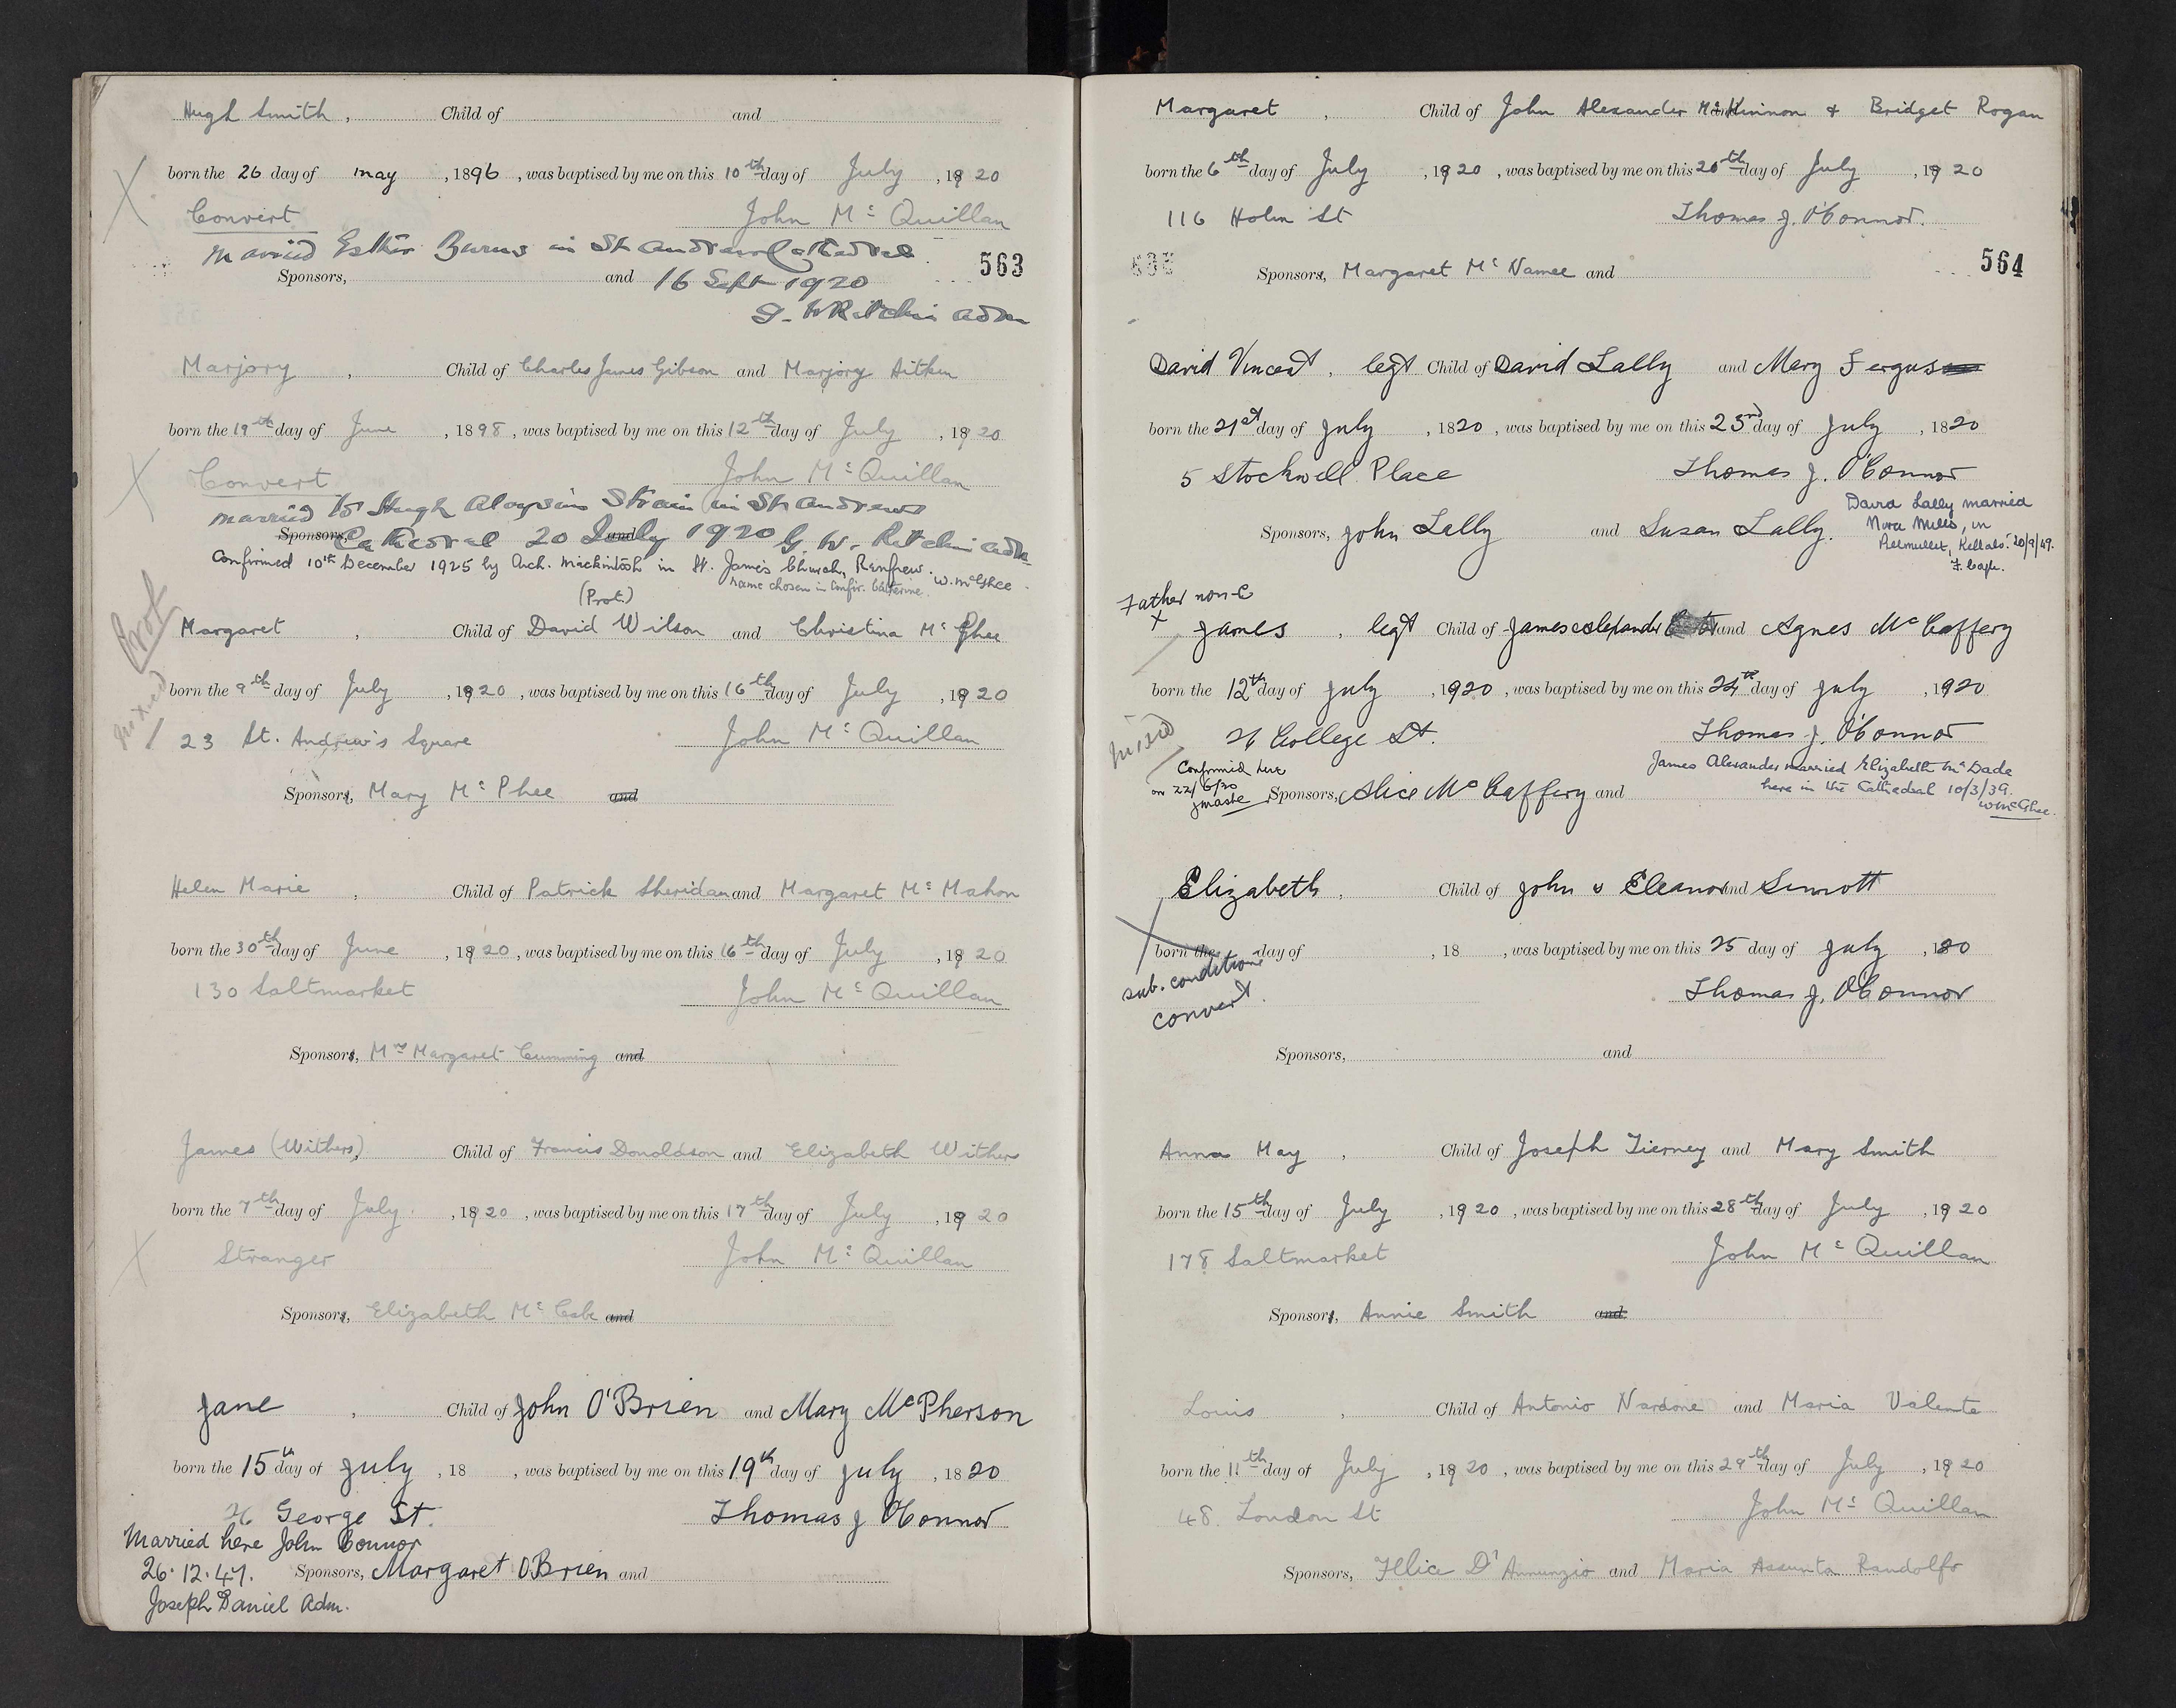 Hugh Smith , Child of and
born the 26 day of may , 1896 , was baptised by me on this 10th day of July , 1920
Convert John Mc Quillan
married Esther Burns in St Andrews Cathedral
Sponsors, and 16 Sept 1920
563
G. W Ritchie Adm
Marjory , Child of Charles James Gibson and Marjory Aitken
born the 19th day of June , 1898 , was baptised by me on this 12th day of July , 1920
Convert John Mc Quillan
married to Hugh Aloysius Strain in St Andrews
Sponsors, Cathedral 20 July 1920 G. W. Ritchie Adm
Confirmed 10th December 1925 by Arch. Mackintosh in St. James's Church, Renfrew. W. McGhee
name chosen in Confir. Catherine.
Prot
mixed
(Prot.)
Margaret , Child of David Wilson and Christina Mc Ghee
born the 9th day of July , 1920 , was baptised by me on this 16th day of July , 1920
23 St. Andrew's Square John Mc Quillan
Sponsors, Mary Mc Phee and
Helen Marie , Child of Patrick Sheridan and Margaret Mc Mahon
born the 30th day of June , 1920 , was baptised by me on this 16th day of July , 1920
130 Saltmarket John Mc Quillan
Sponsors, Mrs Margaret Cumming and
James (Withers) , Child of Francis Donaldson and Elizabeth Withers
born the 7th day of July , 1920 , was baptised by me on this 17th day of July , 1920
Stranger John Mc Quillan
Sponsors, Elizabeth Mc Cabe and
Jane , Child of John O'Brien and Mary McPherson
born the 15th day of July , 18 , was baptised by me on this 19th day of July , 1820
26 George St. Thomas J O'Connor
Married here John Connor
26.12.47. Sponsors, Margaret O'Brien and
Joseph Daniel Adm.
Margaret , Child of John Alexander McKinnon & Bridget Rogan
born the 6th day of July , 1920 , was baptised by me on this 20th day of July , 1920
116 Holm St Thomas J. O'Connor.
Sponsors, Margaret Mc Namee and
564
David Vincent , legt Child of David Lally and Mary Fergus
born the 21st day of July , 1820 , was baptised by me on this 23rd day of July , 1820
5 Stockwell Place Thomas J. O'Connor
Sponsors, John Lally and Susan Lally.
David Lally married
Nora Mills, in
20/9/49.
Father non-C
X James , legt Child of James Alexander and Agnes McCaffery
born the 12th day of July , 1920 , was baptised by me on this 24th day of July , 1920
mixed
26 College St. Thomas J. O'Connor
Confirmed here
James Alexander married Elizabeth McDade
here in the Cathedral 10/3/39.
W McGhee.
Sponsors, Alice McCaffery and
Elizabeth , Child of John & Eleanor and Sinnott
born the day of , 18 , was baptised by me on this 25 day of July , 1820
sub. conditione
convert. Thomas J. O'Connor
Sponsors, and
Anna May , Child of Joseph Tierney and Mary Smith
born the 15th day of July , 1920 , was baptised by me on this 28th day of July , 1920
178 Saltmarket John Mc Quillan
Sponsors, Annie Smith and
Louis , Child of Antonio Nardone and Maria Valente
born the 11th day of July , 1920 , was baptised by me on this 29th day of July , 1920
48. London St John Mc Quillan
Sponsors, Felice D'Annunzio and Maria Assunta Randolfo